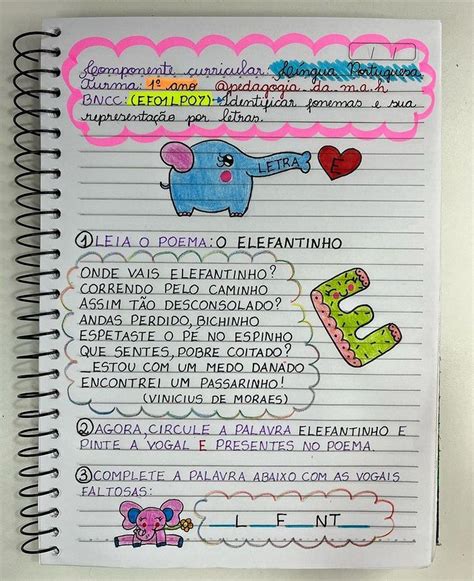 Componente curricular: Língua Portuguesa
Turma: 1º ano @pedagogia.da.m.a.h
BNCC: (EF01LP07) → Identificar fonemas e sua
representação por letras.
LETRA E
① LEIA O POEMA: O ELEFANTINHO
ONDE VAIS ELEFANTINHO?
CORRENDO PELO CAMINHO
ASSIM TÃO DESCONSOLADO?
ANDAS PERDIDO, BICHINHO
ESPETASTE O PÉ NO ESPINHO
QUE SENTES, POBRE COITADO?
_ESTOU COM UM MEDO DANADO
ENCONTREI UM PASSARINHO!
(VINICIUS DE MORAES)
E
② AGORA, CIRCULE A PALAVRA ELEFANTINHO E
PINTE A VOGAL E PRESENTES NO POEMA.
③ COMPLETE A PALAVRA ABAIXO COM AS VOGAIS
FALTOSAS:
__L__F__NT__